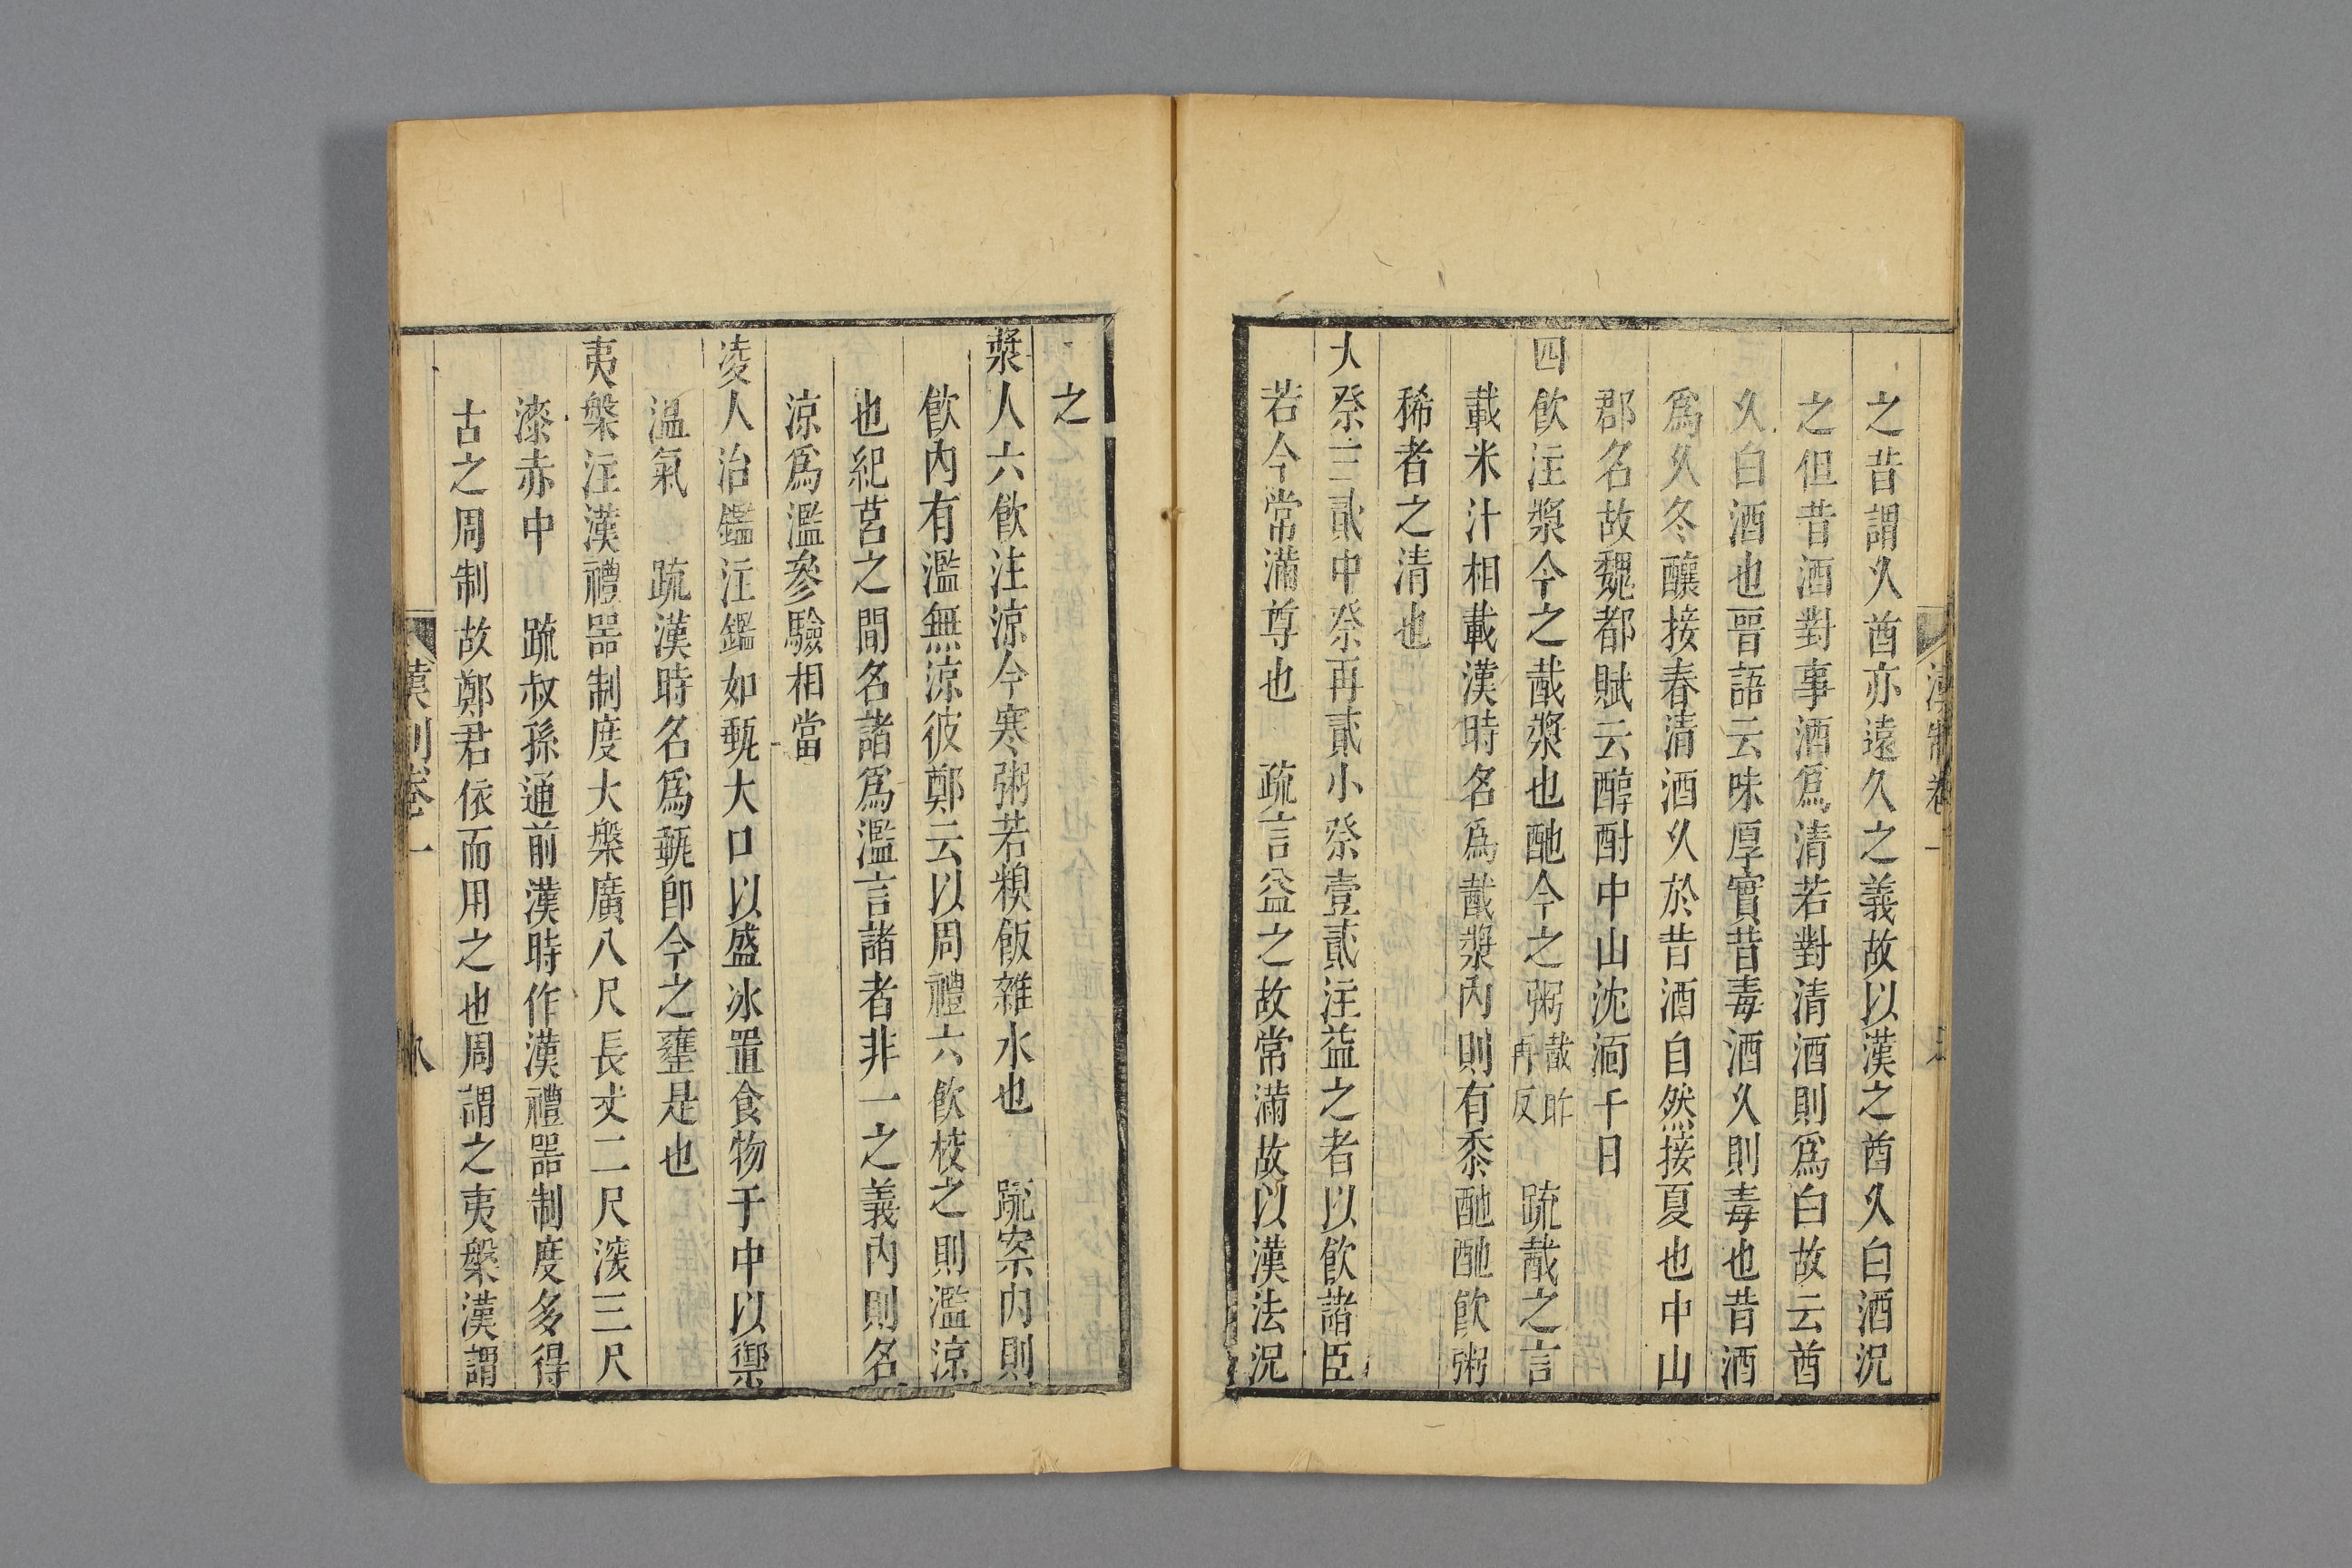 漢制卷一
之昔謂久酋亦遠久之義故以漢之酋久白酒況
之但昔酒對事酒爲清若對清酒則爲白故云酋
久白酒也晉語云味厚實昔毒酒久則毒也昔酒
爲久冬釀接春清酒久於昔酒自然接夏也中山
郡名故魏都賦云醇酎中山沈湎千日
四飮注漿今之酨漿也酏今之粥酨昨再反 疏酨之言
載米汁相載漢時名爲酨漿內則有黍酏酏飮粥
稀者之清也
大祭三貳中祭再貳小祭壹貳注益之者以飮諸臣
若今常滿尊也 疏言益之故常滿故以漢法況
之
漿人六飮注涼今寒粥若糗飯雜水也 疏案內則
飮內有濫無涼彼鄭云以周禮六飮校之則濫涼
也紀莒之間名諸爲濫言諸者非一之義內則名
涼爲濫參驗相當
凌人治鑑注鑑如甀大口以盛冰置食物于中以禦
溫氣 疏漢時名爲甀卽今之甕是也
夷槃注漢禮器制度大槃廣八尺長丈二尺深三尺
漆赤中 疏叔孫通前漢時作漢禮器制度多得
古之周制故鄭君依而用之也周謂之夷槃漢謂
漢制卷一
八